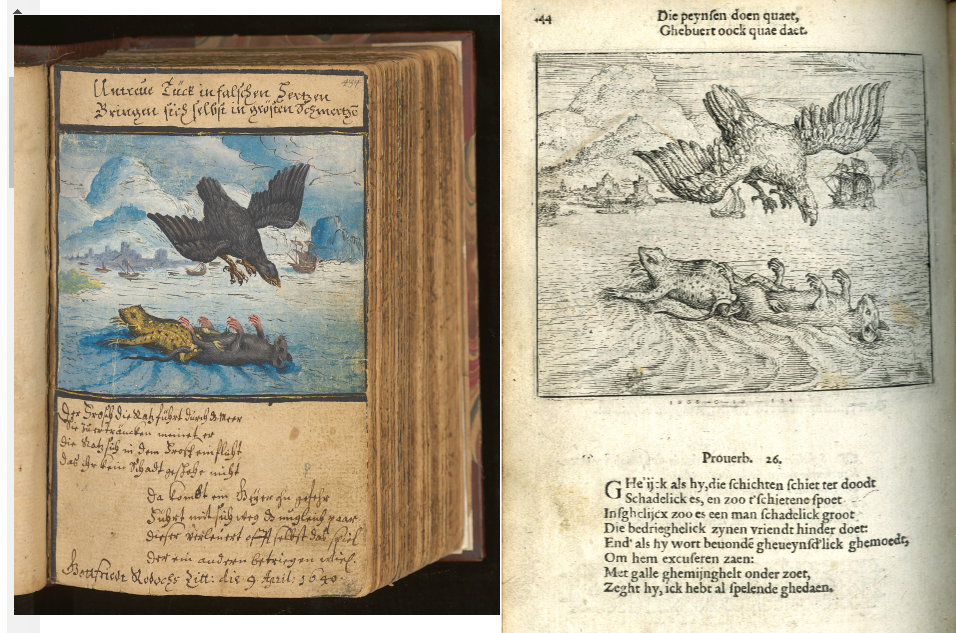 434
Untreue Tück in falschen Hertzen
Bringen sich selbst in grösten Schmertzē
Der Frosch die Ratz führt durchs Meer
Sie zu ertrāncken meinet er
die Ratz sich in dem Frosch einflaht
das ihr kein Schadt geschehe nicht
Da kombt ein Geyer
führt mit sich weg
dieser verleuert offt selbst das spiel
der ein andern betriegen will.
Gottfriedt Zitt: die 9 April:
44
Die peynsen doen quaet,
Ghebuert oock quae daet.
Prouerb. 26.
GHe'ijck als hy, die schichten schiet ter doodt
Schadelick es, en zoo t'schietene spoet
Insghelijcx zoo es een man schadelick groot
Die bedrieghelick zynen vriendt hinder doet:
End' als hy wort beuondē gheueynsd'lick ghemoedt,
Om hem excuseren zaen:
Met galle ghemijnghelt onder zoet,
Zeght hy, ick hebt al spelende ghedaen.